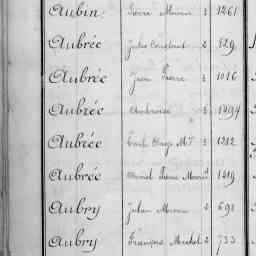 Aubin Pierre Marie 2 1261
Aubrée Jules Constant 2 829
Aubrée Jean Pierre 2 1016
Aubrée Ambroise 2 1494
Aubrée Emile Ange M. 2
Aubrée Pierre Marie 2 1419
Aubry Julien Marie 2 691
Aubry François Michel 2 733